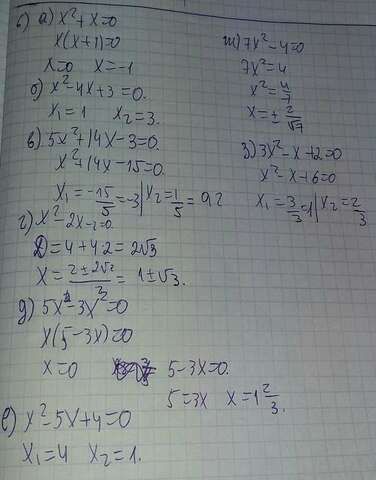 6) а) x² + x = 0
x(x+1)=0
x=0 x=-1
б) x²-4x+3=0.
x₁=1 x₂=3.
в) 5x²+14x-3=0.
x²+14x-15=0.
x₁=-15/5=-3 | x₂=1/5=0,2
г) x²-2x-2=0.
D=4+4·2=2√3
x=(2±2√2)/2=1±√3.
д) 5x-3x²=0
x(5-3x)=0
x=0 5-3x=0.
5=3x x=1 2/3.
е) x²-5x+4=0
x₁=4 x₂=1.
ж) 7x²-4=0
7x²=4
x²=4/7
x=±2/√7
з) 3x²-x+2=0
x²-x+6=0
x₁=3/3=1 | x₂=2/3